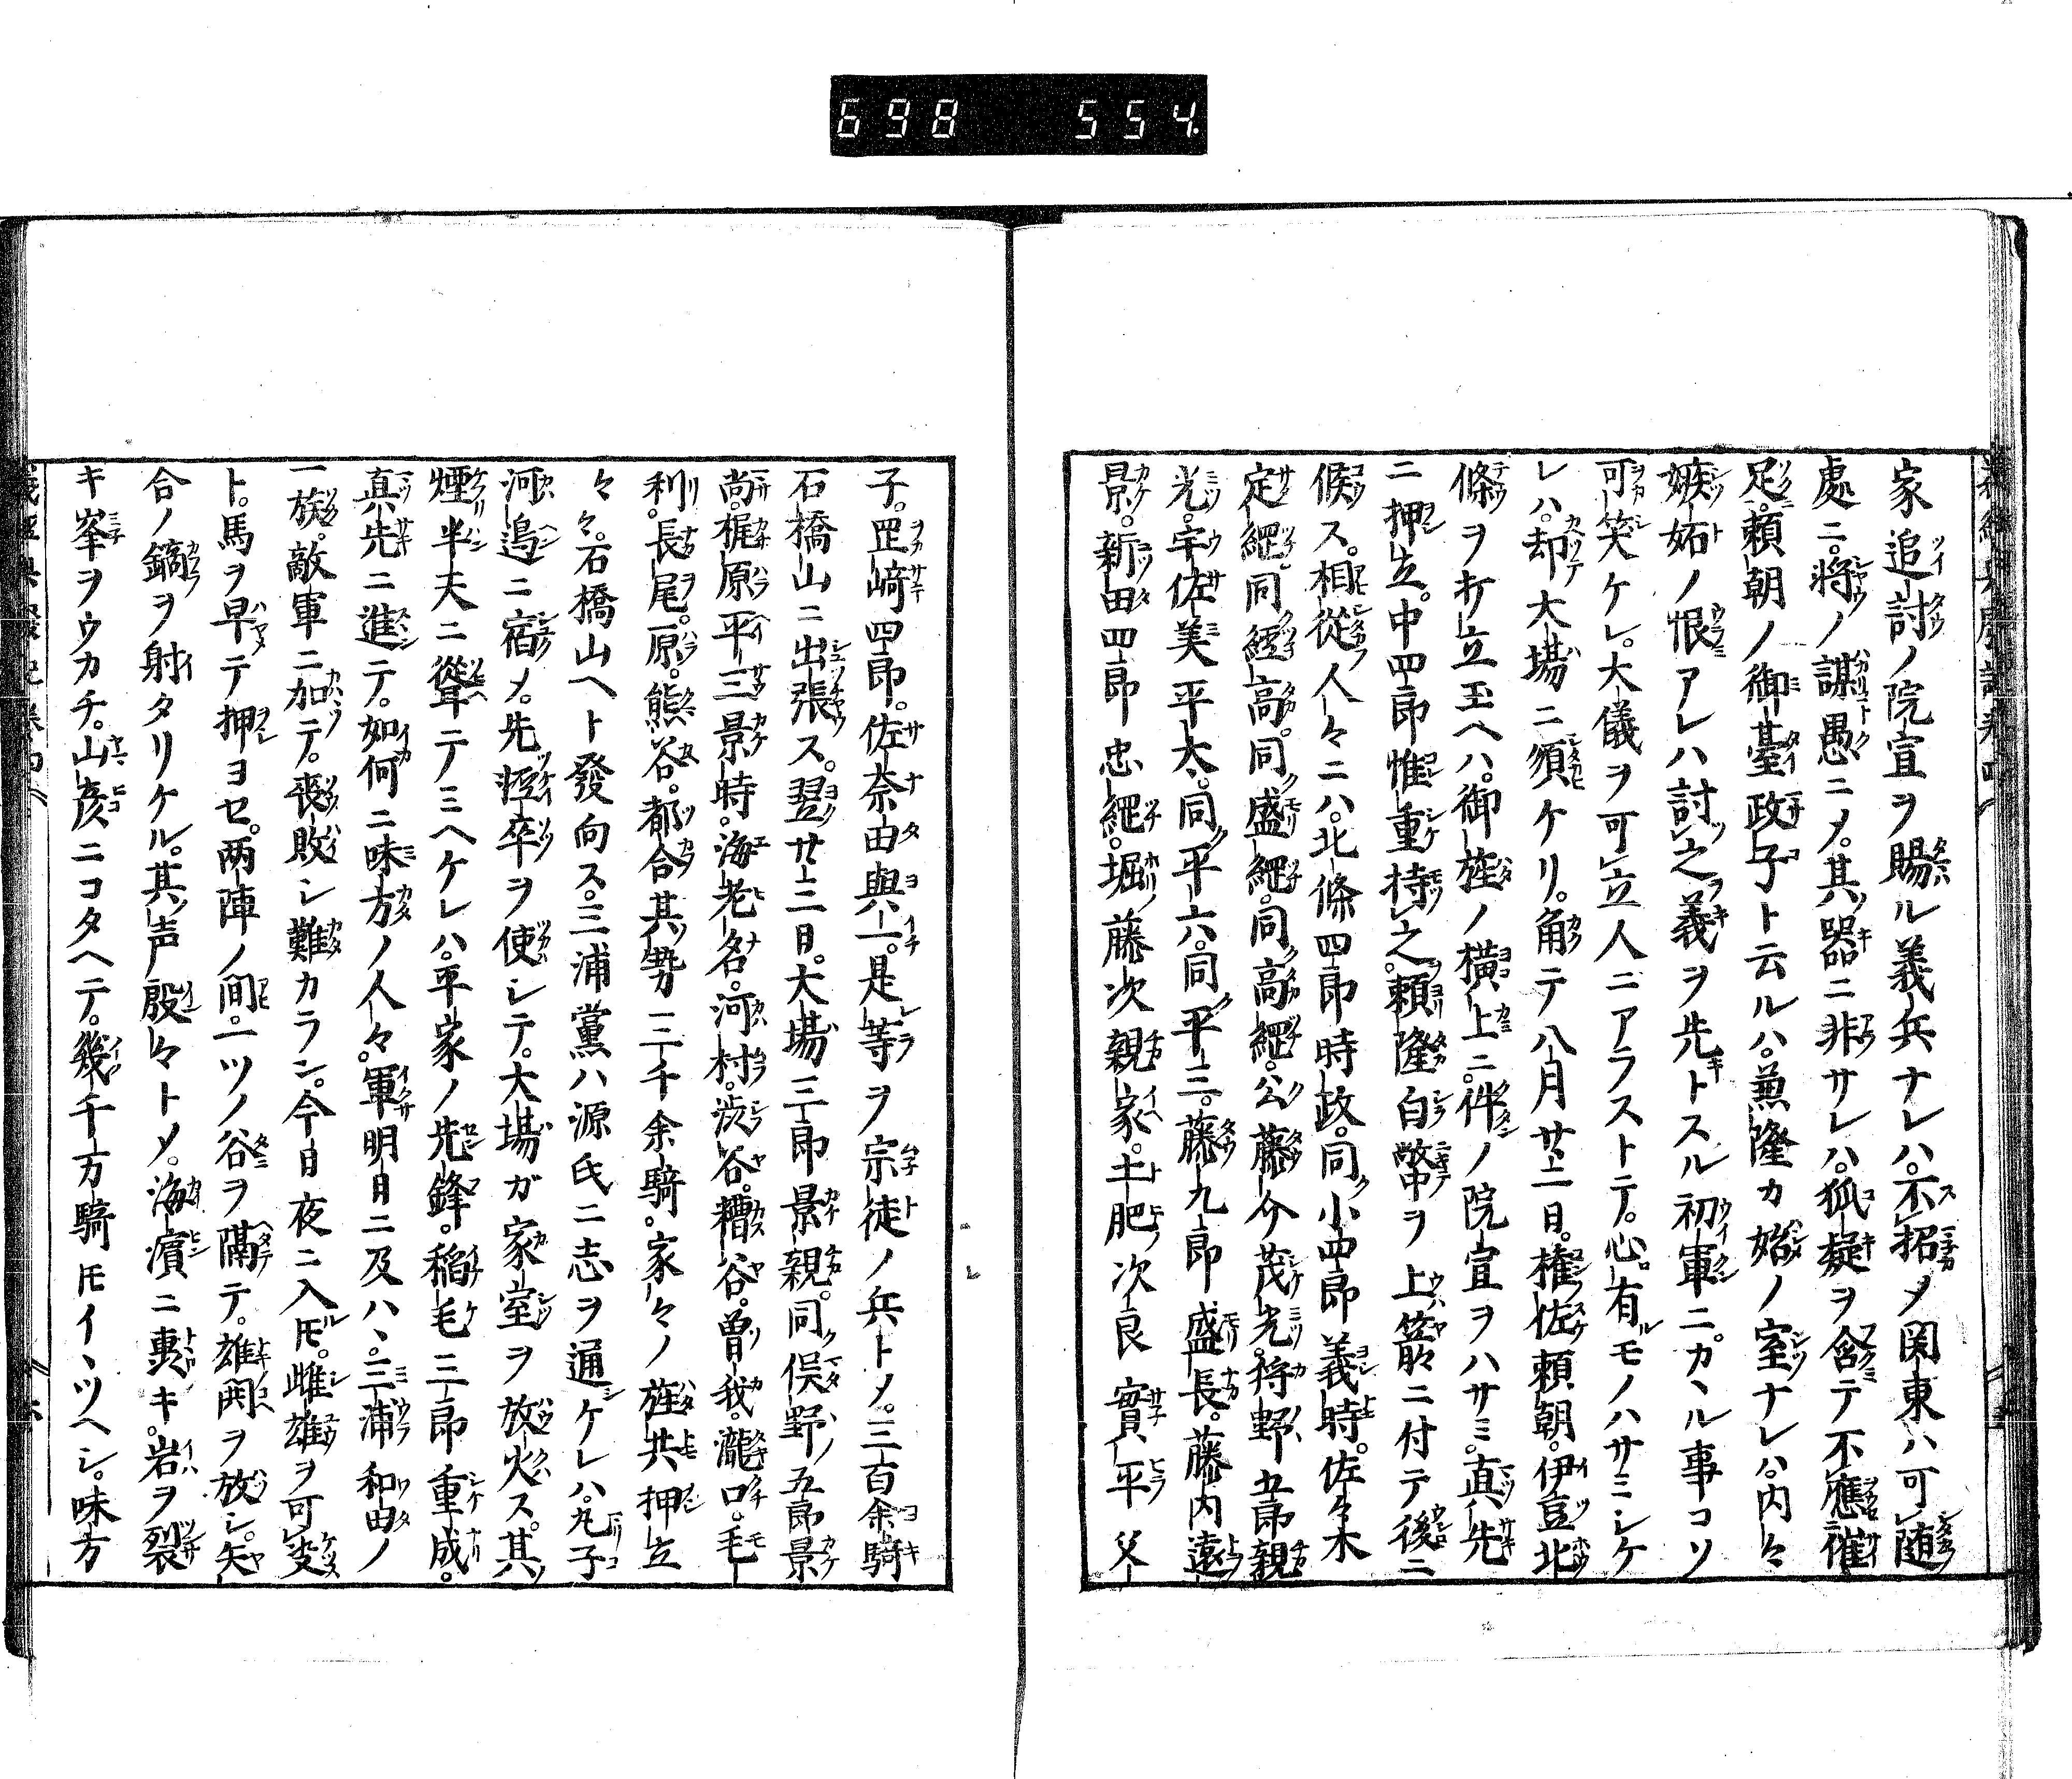 698 554.
家追討ノ院宣ヲ賜ル義兵ナレハ。不招メ関東ハ可随
處ニ。将ノ謀愚ニメ。其ノ器ニ非サレハ。狐疑ヲ含テ不應催
足。頼朝ノ御臺政子ト云ルハ。兼隆カ始ノ室ナレハ。内々
嫉妬ノ恨アレハ討之義ヲ先トスル初軍ニ。カヽル事コソ
可笑ケレ。大儀ヲ可立人ニアラストテ。心有モノハサミシケ
レハ。却大場ニ須ケリ。角テ八月廿二日。権佐頼朝。伊豆北
條ヲ打立玉ヘハ。御旌ノ横上ニ。件ノ院宣ヲハサミ。真先
ニ押立。中四郎惟重持之。頼隆白幣ヲ上箭ニ付テ後ニ
候ス。相從人々ニハ。北條四郎時政。同小四郎義時。佐々木
定綱。同經高。同盛綱。同高綱。公藤介茂光。狩野五郎親
光。宇佐美平太。同平六。同平三。藤九郎盛長。藤内遠
景。新田四郎忠綱。堀藤次親家。土肥次良實平父
子。罡﨑四郎。佐奈田與一。是等ヲ宗徒ノ兵トメ。三百余騎
石橋山ニ出張ス。翌廿三日。大場三郎景親。同俣野五郎景
尚。梶原平三景時。海老名。河村。渋谷。糟谷。曽我。瀧口。毛
利。長尾。原。熊谷。都合其勢三千余騎。家々ノ旌共押立
々々。石橋山ヘト發向ス。三浦黨ハ源氏ニ志ヲ通ケレハ。丸子
河邉ニ宿メ。先軽卒ヲ使シテ。大場ガ家室ヲ放火ス。其
煙半天ニ聳テミヘケレハ。平家ノ先鋒。稲毛三郎重成。
真先ニ進テ。如何ニ味方ノ人々。軍明日ニ及ハヽ。三浦和田ノ
一族。敵軍ニ加テ。喪敗シ難カラン。今日夜ニ入ルモ。雌雄ヲ可决
ト。馬ヲ早テ押ヨセ。両陣ノ間。一ツノ谷ヲ隔テ。雄閧ヲ放シ。矢
合ノ鏑ヲ射タリケル。其声殷々トメ。海濱ニ轟キ。岩ヲ裂
キ峯ヲウカチ。山彦ニコタヘテ。幾千万騎𪜈イヽツヘシ。味方